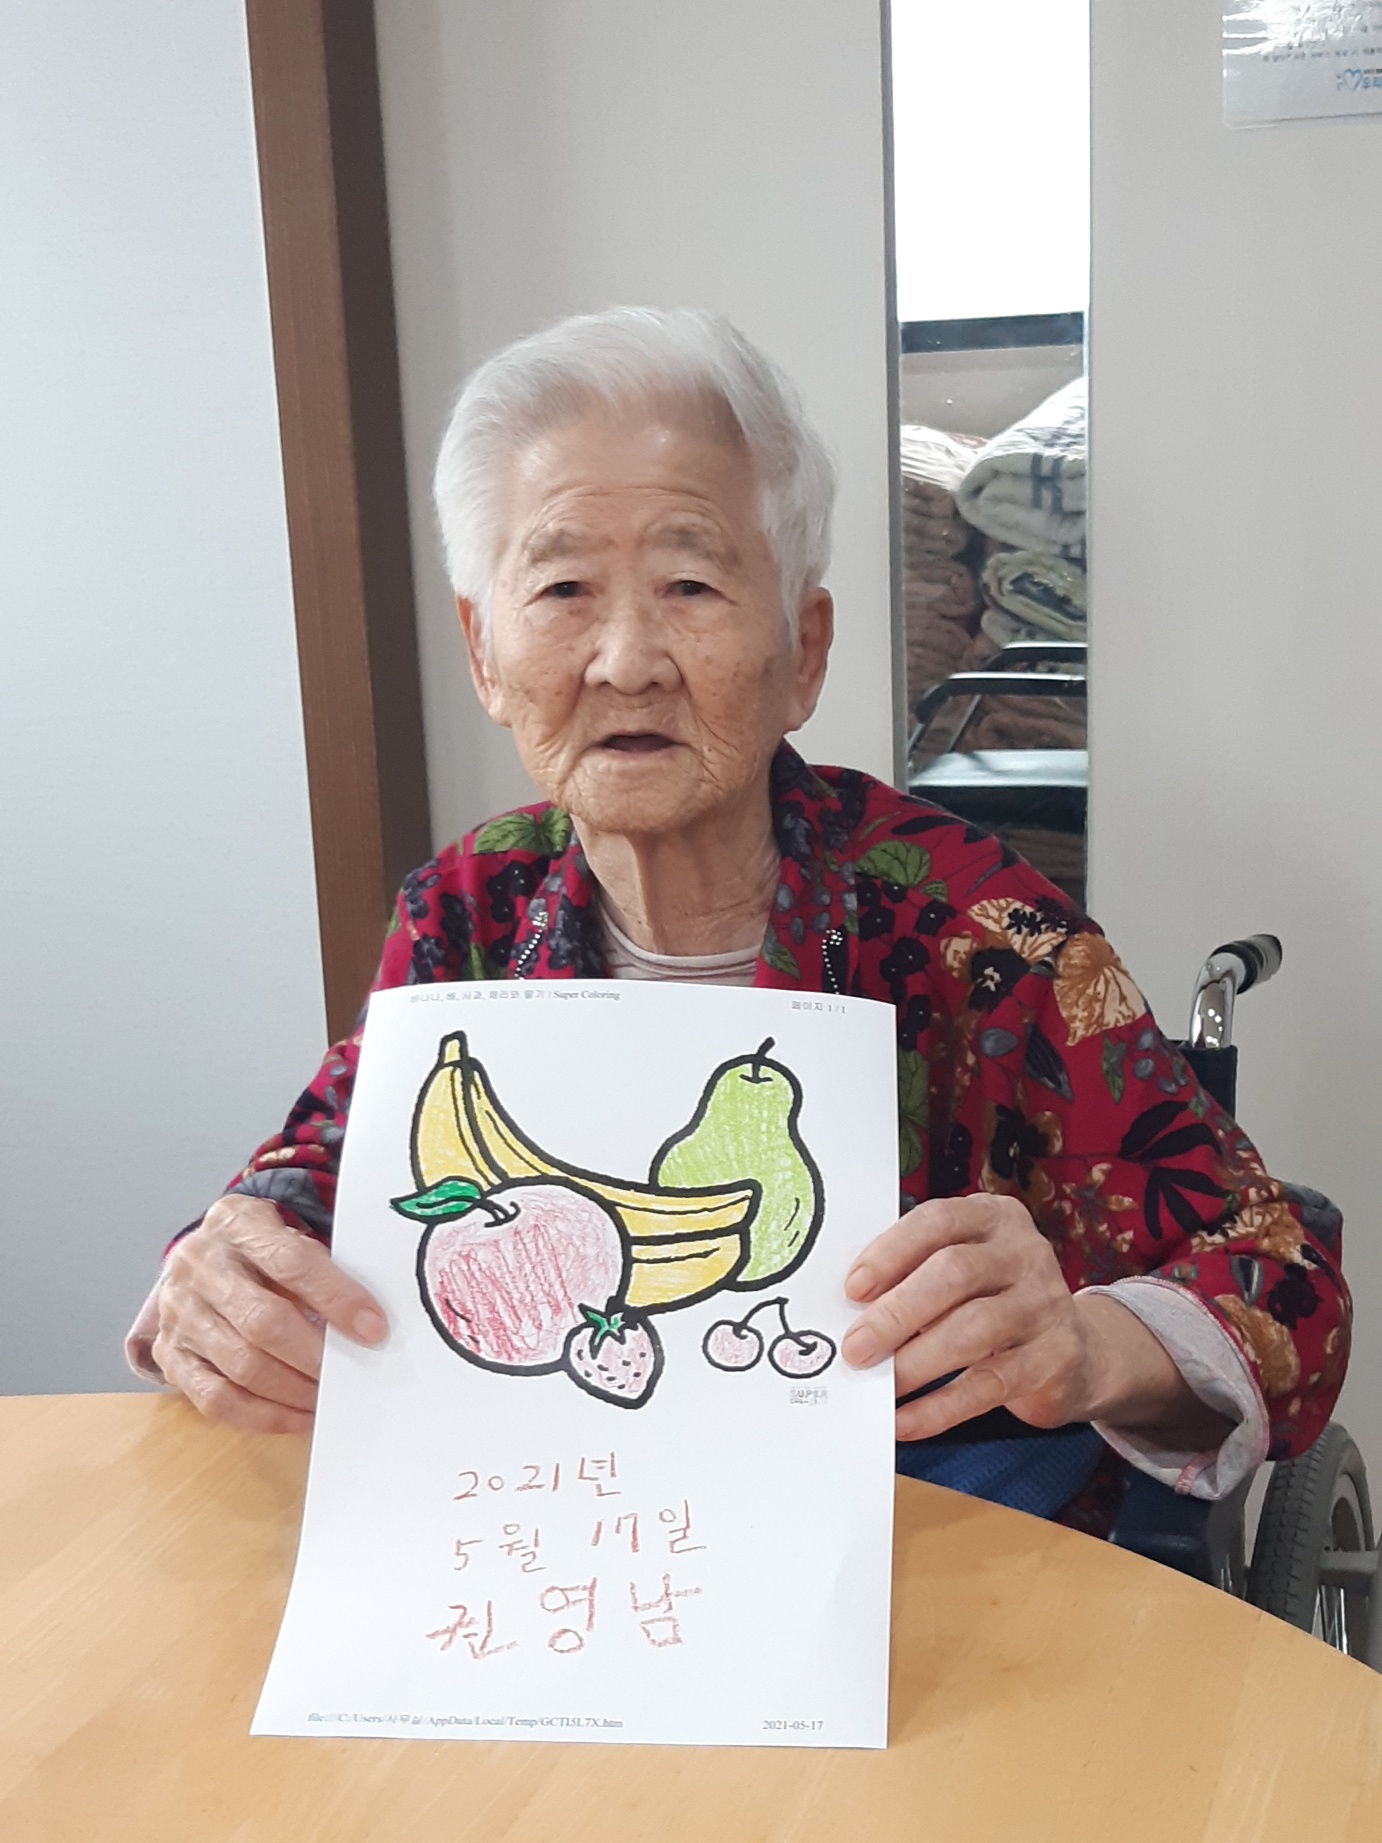 바나나, 배, 사과, 체리와 딸기 | Super Coloring
페이지 1 / 1
SUPER
2021년
5월 17일
권영남
file:///C:/Users/사무실/AppData/Local/Temp/GCTI5L7X.htm
2021-05-17